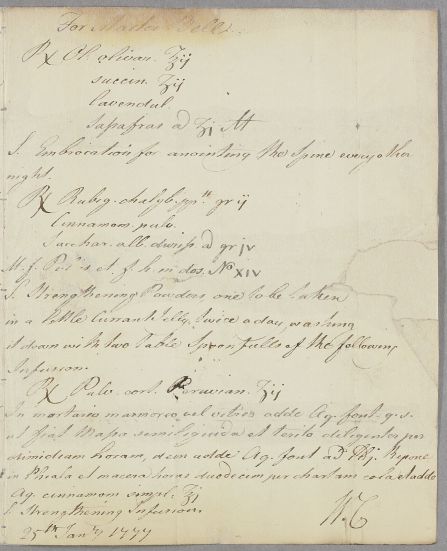 For Master Bell.
℞ Ol. olivar. ʒij
succin. ʒij
lavendul.
sassafras a ʒj M
S. Embrocation for anointing the Spine every other
night.
℞ Rubig. chalyb. ppt. gr ij
Cinnamom. pulv.
Sacchar. alb. a gr iv
M. f. Pulvis et f. h. m. dos. No XIV
S. Strengthening Powders, one to be taken
in a little Currant Jelly, twice a day, washing
it down with two Table Spoonfulls of the following
Infusion.
℞ Pulv. cort. Peruvian. ʒij
In mortario marmoreo, vel vitreo adde Aq. font. q. s.
ut fiat Massa semiliquida et terito diligenter per
dimidiam horam, dein adde Aq. font. ad Repone
in Phiala et macera horas duodecim per chartam cola et adde
Aq. cinnamom. simpl. ʒj
S. Strengthening Infusion.
W.C
25th Jany 1777